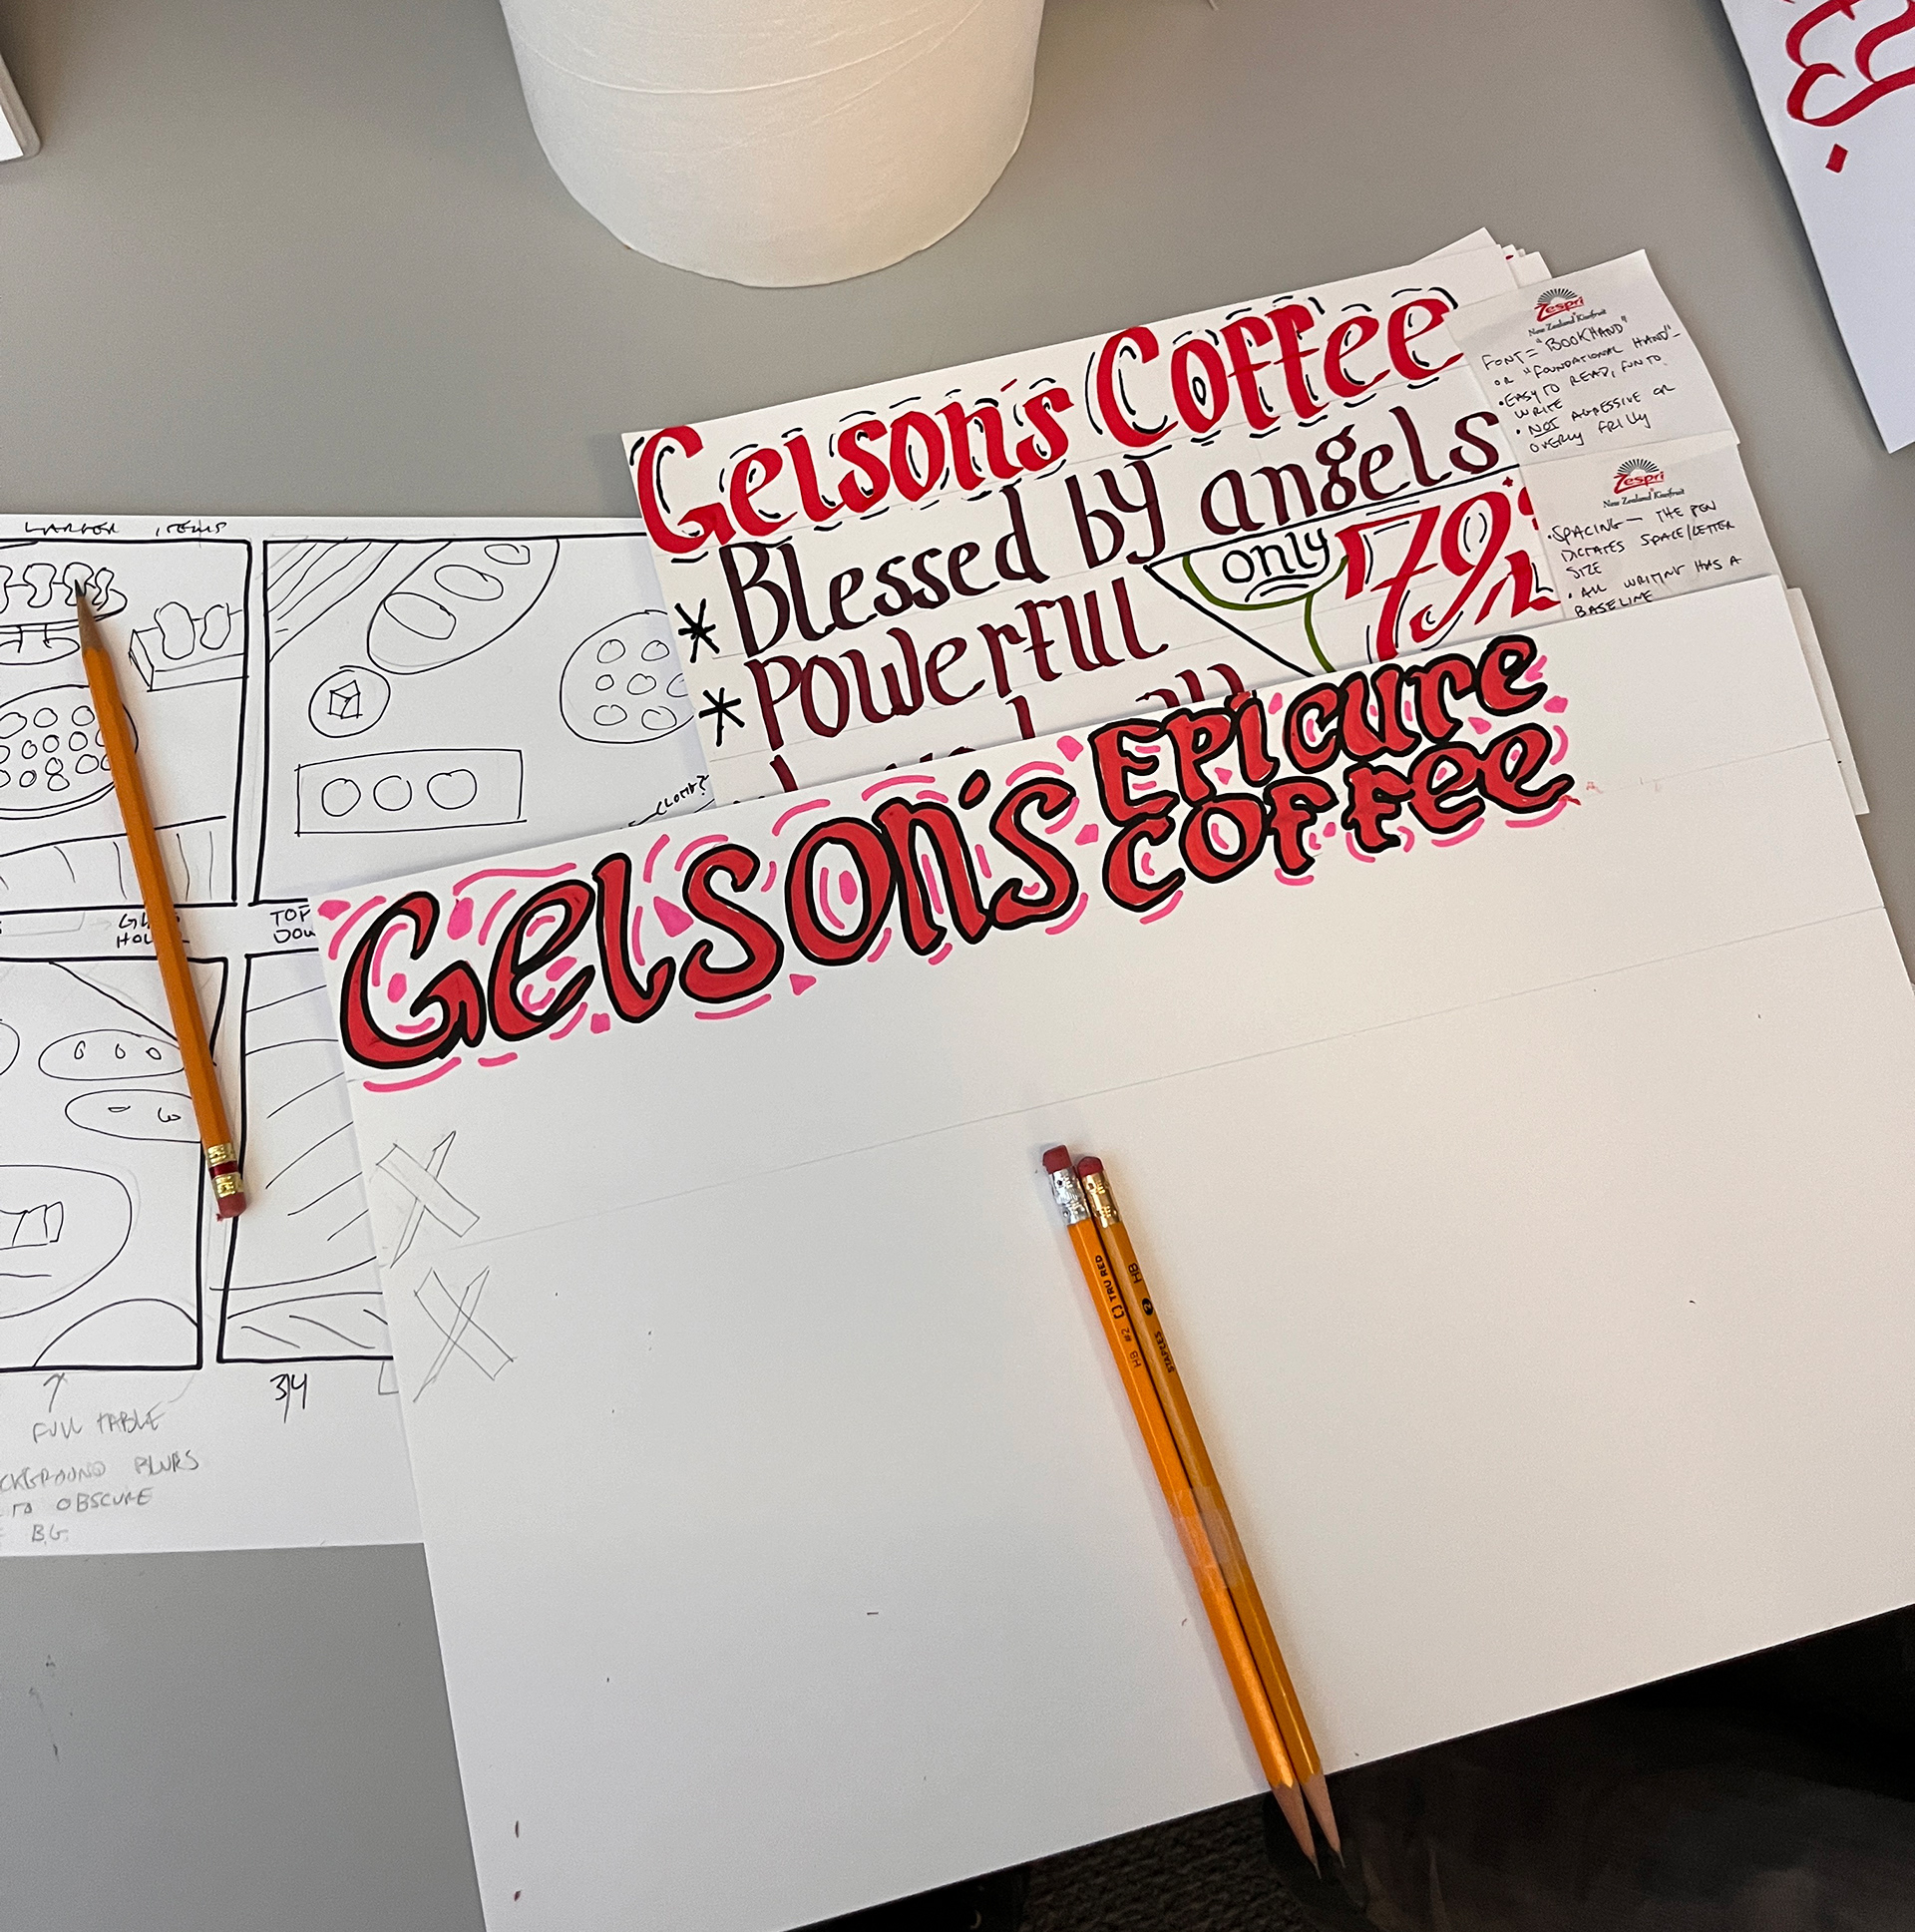 LARGER ITEMS
TOP
3/4
FULL TABLE
BLURS
TO OBSCURE
B.G.
Gelson's Coffee
* Blessed by angels
only 179
* Powerful
Zespri
New Zealand Kiwifruit
FONT = "BOOKHAND"
OR "FOUNDATIONAL HAND" -
• EASY TO READ, FUN TO
WRITE
• NOT AGRESSIVE OR
OVERLY FRILLY
Zespri
New Zealand Kiwifruit
• SPACING — THE PEN
DICTATES SPACE/LETTER
SIZE
• ALL WRITING HAS A
BASELINE
Gelson's Epicure
Coffee
HB #2 [] TRU RED
STAPLES 2 HB